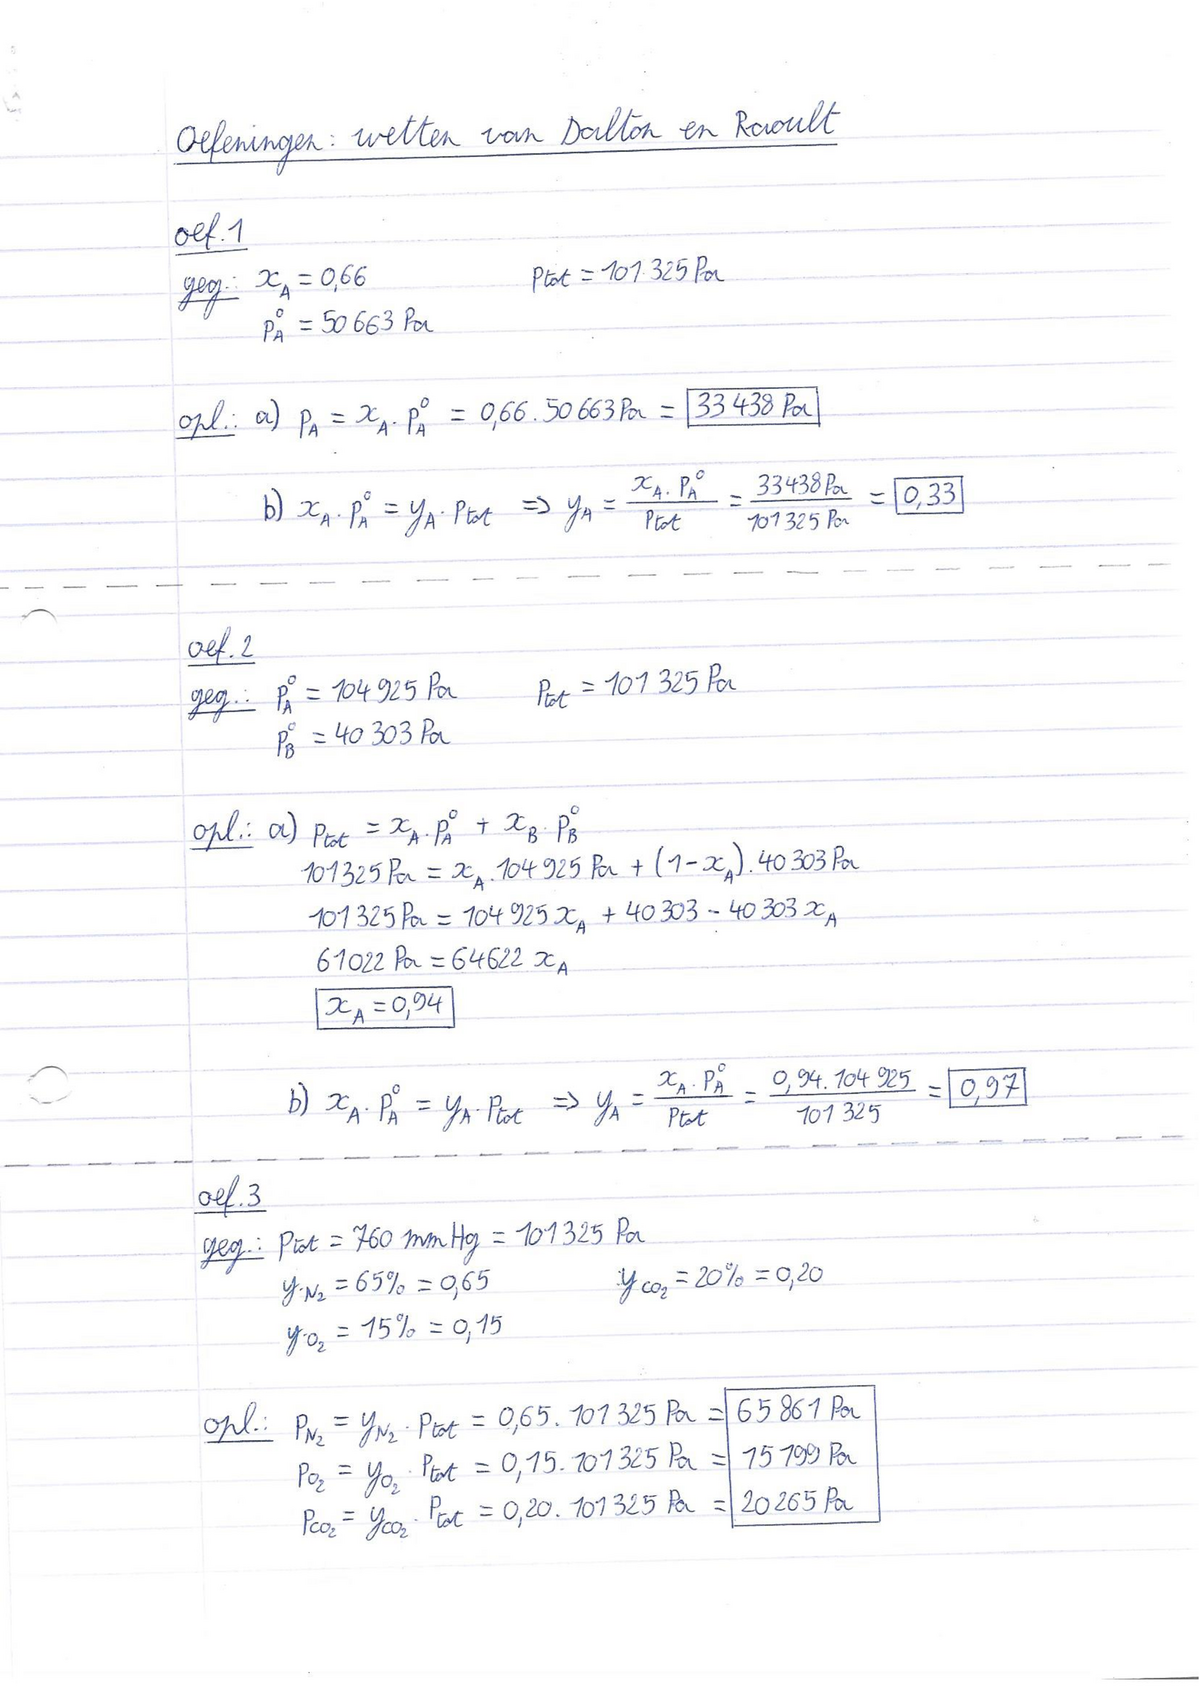 Oefeningen: wetten van Dalton en Raoult
oef. 1
geg.: x_A = 0,66 P_tot = 101 325 Pa
P°_A = 50 663 Pa
opl.: a) P_A = x_A . P°_A = 0,66 . 50 663 Pa = 33 438 Pa
b) x_A . P°_A = y_A . P_tot => y_A = x_A . P°_A / P_tot = 33438 Pa / 101 325 Pa = 0,33
oef. 2
geg.: P°_A = 104 925 Pa P_tot = 101 325 Pa
P°_B = 40 303 Pa
opl.: a) P_tot = x_A . P°_A + x_B . P°_B
101325 Pa = x_A . 104 925 Pa + (1-x_A) . 40 303 Pa
101 325 Pa = 104 925 x_A + 40 303 - 40 303 x_A
61022 Pa = 64622 x_A
x_A = 0,94
b) x_A . P°_A = y_A . P_tot => y_A = x_A . P°_A / P_tot = 0,94 . 104 925 / 101 325 = 0,97
oef. 3
geg.: P_tot = 760 mm Hg = 101 325 Pa
y_N₂ = 65% = 0,65 y_CO₂ = 20% = 0,20
y_O₂ = 15% = 0,15
opl.: P_N₂ = y_N₂ . P_tot = 0,65 . 101 325 Pa = 65 861 Pa
P_O₂ = y_O₂ . P_tot = 0,15 . 101 325 Pa = 15 199 Pa
P_CO₂ = y_CO₂ . P_tot = 0,20 . 101 325 Pa = 20 265 Pa